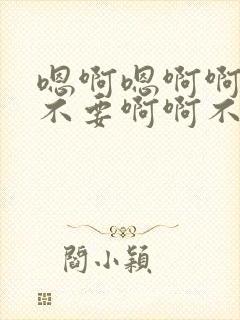 嗯啊嗯啊啊
不要啊啊不
閻小穎